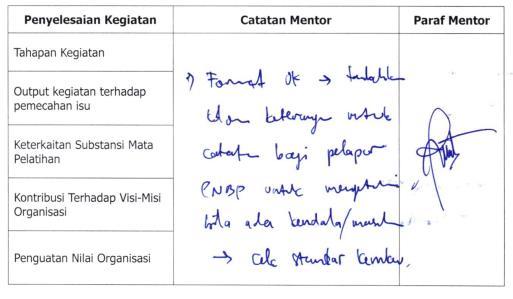 Penyelesaian Kegiatan
Catatan Mentor
Paraf Mentor
Tahapan Kegiatan
Output kegiatan terhadap
pemecahan isu
Keterkaitan Substansi Mata
Pelatihan
Kontribusi Terhadap Visi-Misi
Organisasi
Penguatan Nilai Organisasi
1) Format OK → tambahkan
kolom keterangan untuk
catatan bagi pelapor
PNBP untuk mengetahui
bila ada kendala/masalah
→ Cek standar